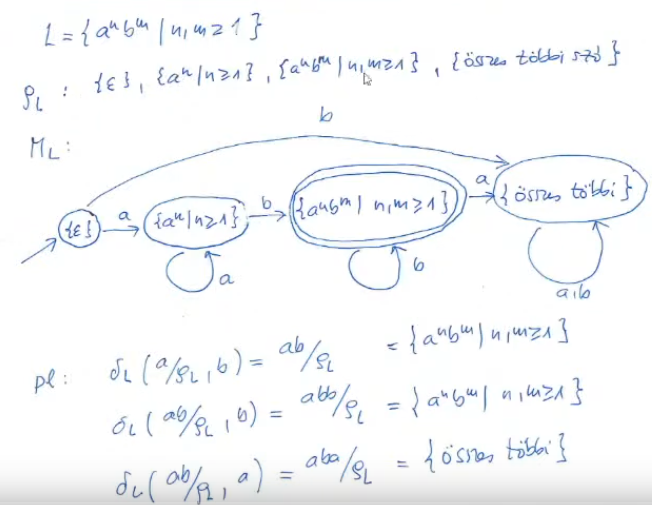 L = {aⁿbᵐ | n,m ≥ 1}
ρ_L : {ε}, {aⁿ | n≥1}, {aⁿbᵐ | n,m≥1}, {összes többi szó}
b
M_L:
{ε} a {aⁿ | n≥1} b {aⁿbᵐ | n,m≥1} a {összes többi}
a b a,b
pl: δ_L (a/ρ_L, b) = ab/ρ_L = {aⁿbᵐ | n,m≥1}
δ_L (ab/ρ_L, b) = abb/ρ_L = {aⁿbᵐ | n,m≥1}
δ_L (ab/ρ_L, a) = aba/ρ_L = {összes többi}